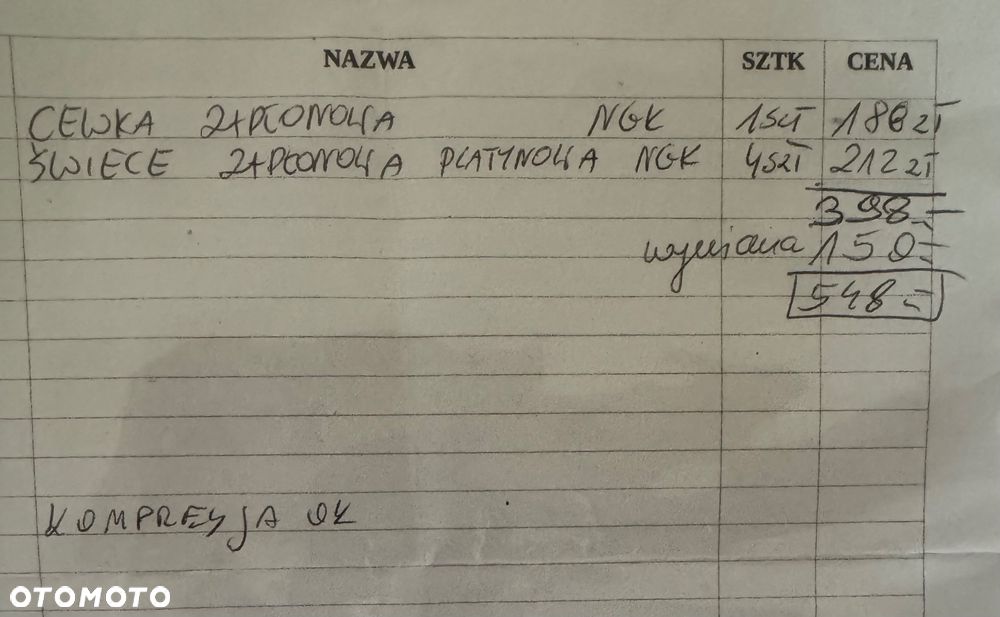 NAZWA SZTK CENA
CEWKA ZAPŁONOWA NGK 1szt 186 zł
ŚWIECE ZAPŁONOWA PLATYNOWA NGK 4szt 212 zł
398,-
wymiana 150,-
548,-
KOMPRESJA OK
OTOMOTO